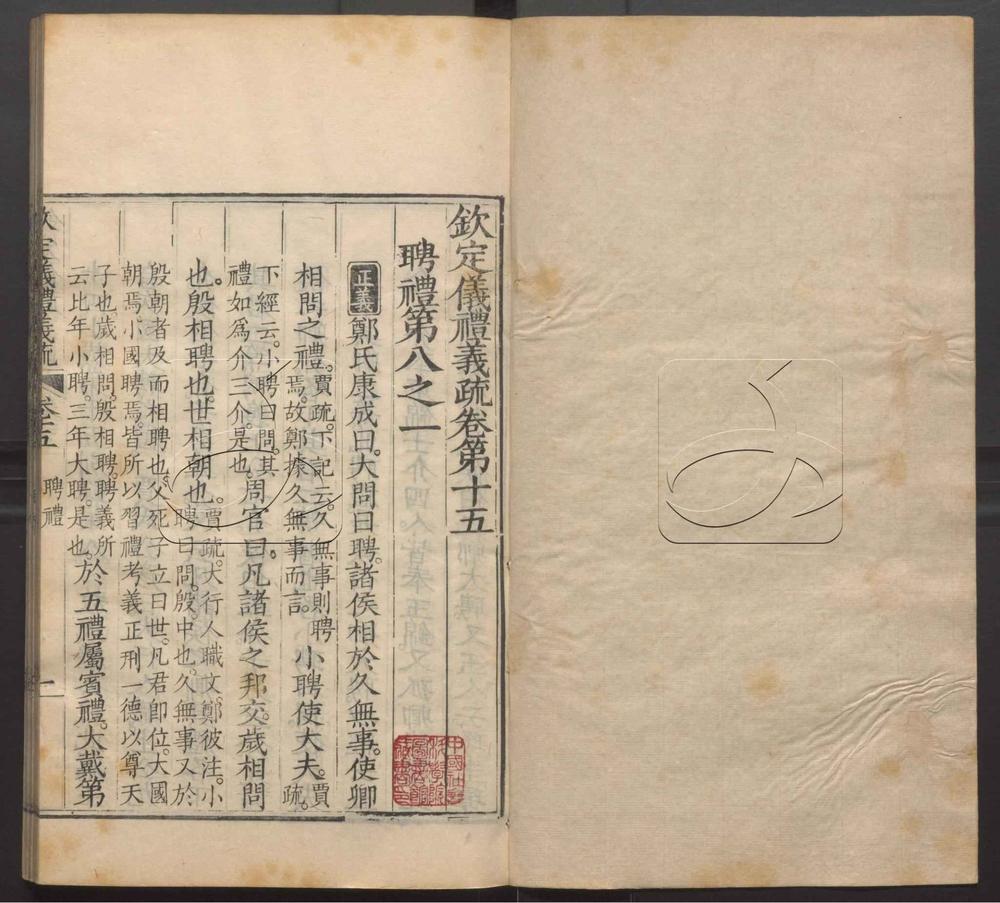 欽定儀禮義疏卷第十五
聘禮第八之一
正義鄭氏康成曰大問曰聘。諸侯相於久無事。使卿
相問之禮。賈疏。下記云。久無事則聘
焉。故鄭據久無事而言。小聘使大夫。賈疏。
下經云。小聘曰問。其
禮如爲介三介。是也。周官曰。凡諸侯之邦交。歲相問
也。殷相聘也。世相朝也。賈疏。大行人職文。鄭彼注。小
聘曰問。殷。中也。久無事又於
殷朝者及而相聘也。父死子立曰世。凡君卽位。大國
朝焉。小國聘焉。皆所以習禮考義正刑一德以尊天
子也。歲相問。殷相聘。聘義所
云比年小聘。三年大聘。是也。於五禮屬賓禮。大戴第
欽定儀禮義疏 卷十五 聘禮 一
中國社會
科學院
圖書館
藏書印